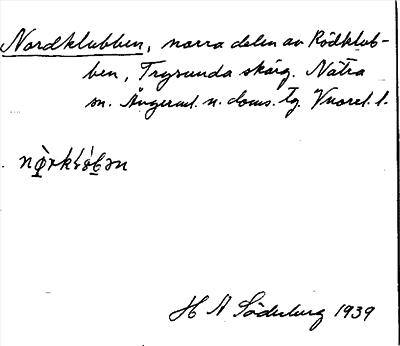 Nordklubben, norra delen av Rödklub-
ben, Trysunda skärg. Nätra
sn. Ångerml. n. doms. tg.
nø̀rkłöbən
H A Söderberg 1939